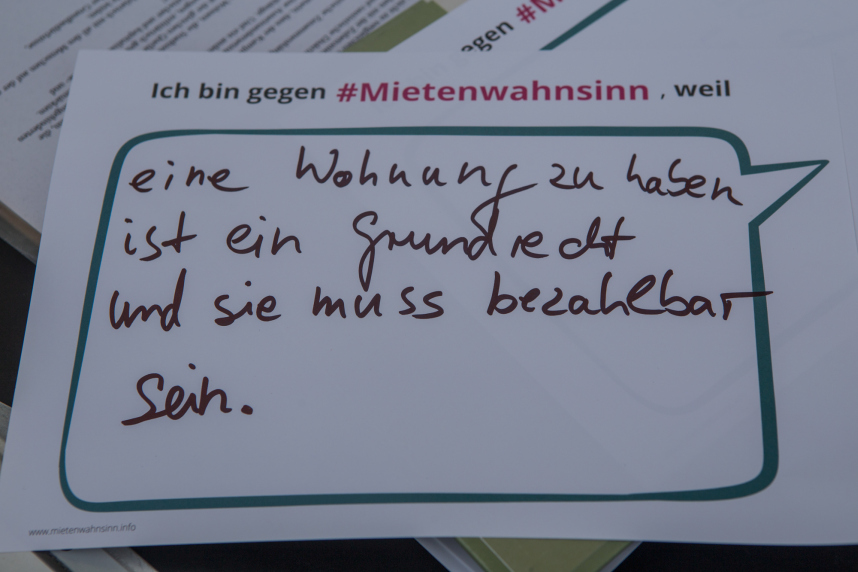 Ich bin gegen #Mietenwahnsinn , weil
eine Wohnung zu haben
ist ein Grundrecht
und sie muss bezahlbar
sein.
www.mietenwahnsinn.info
gegen #M